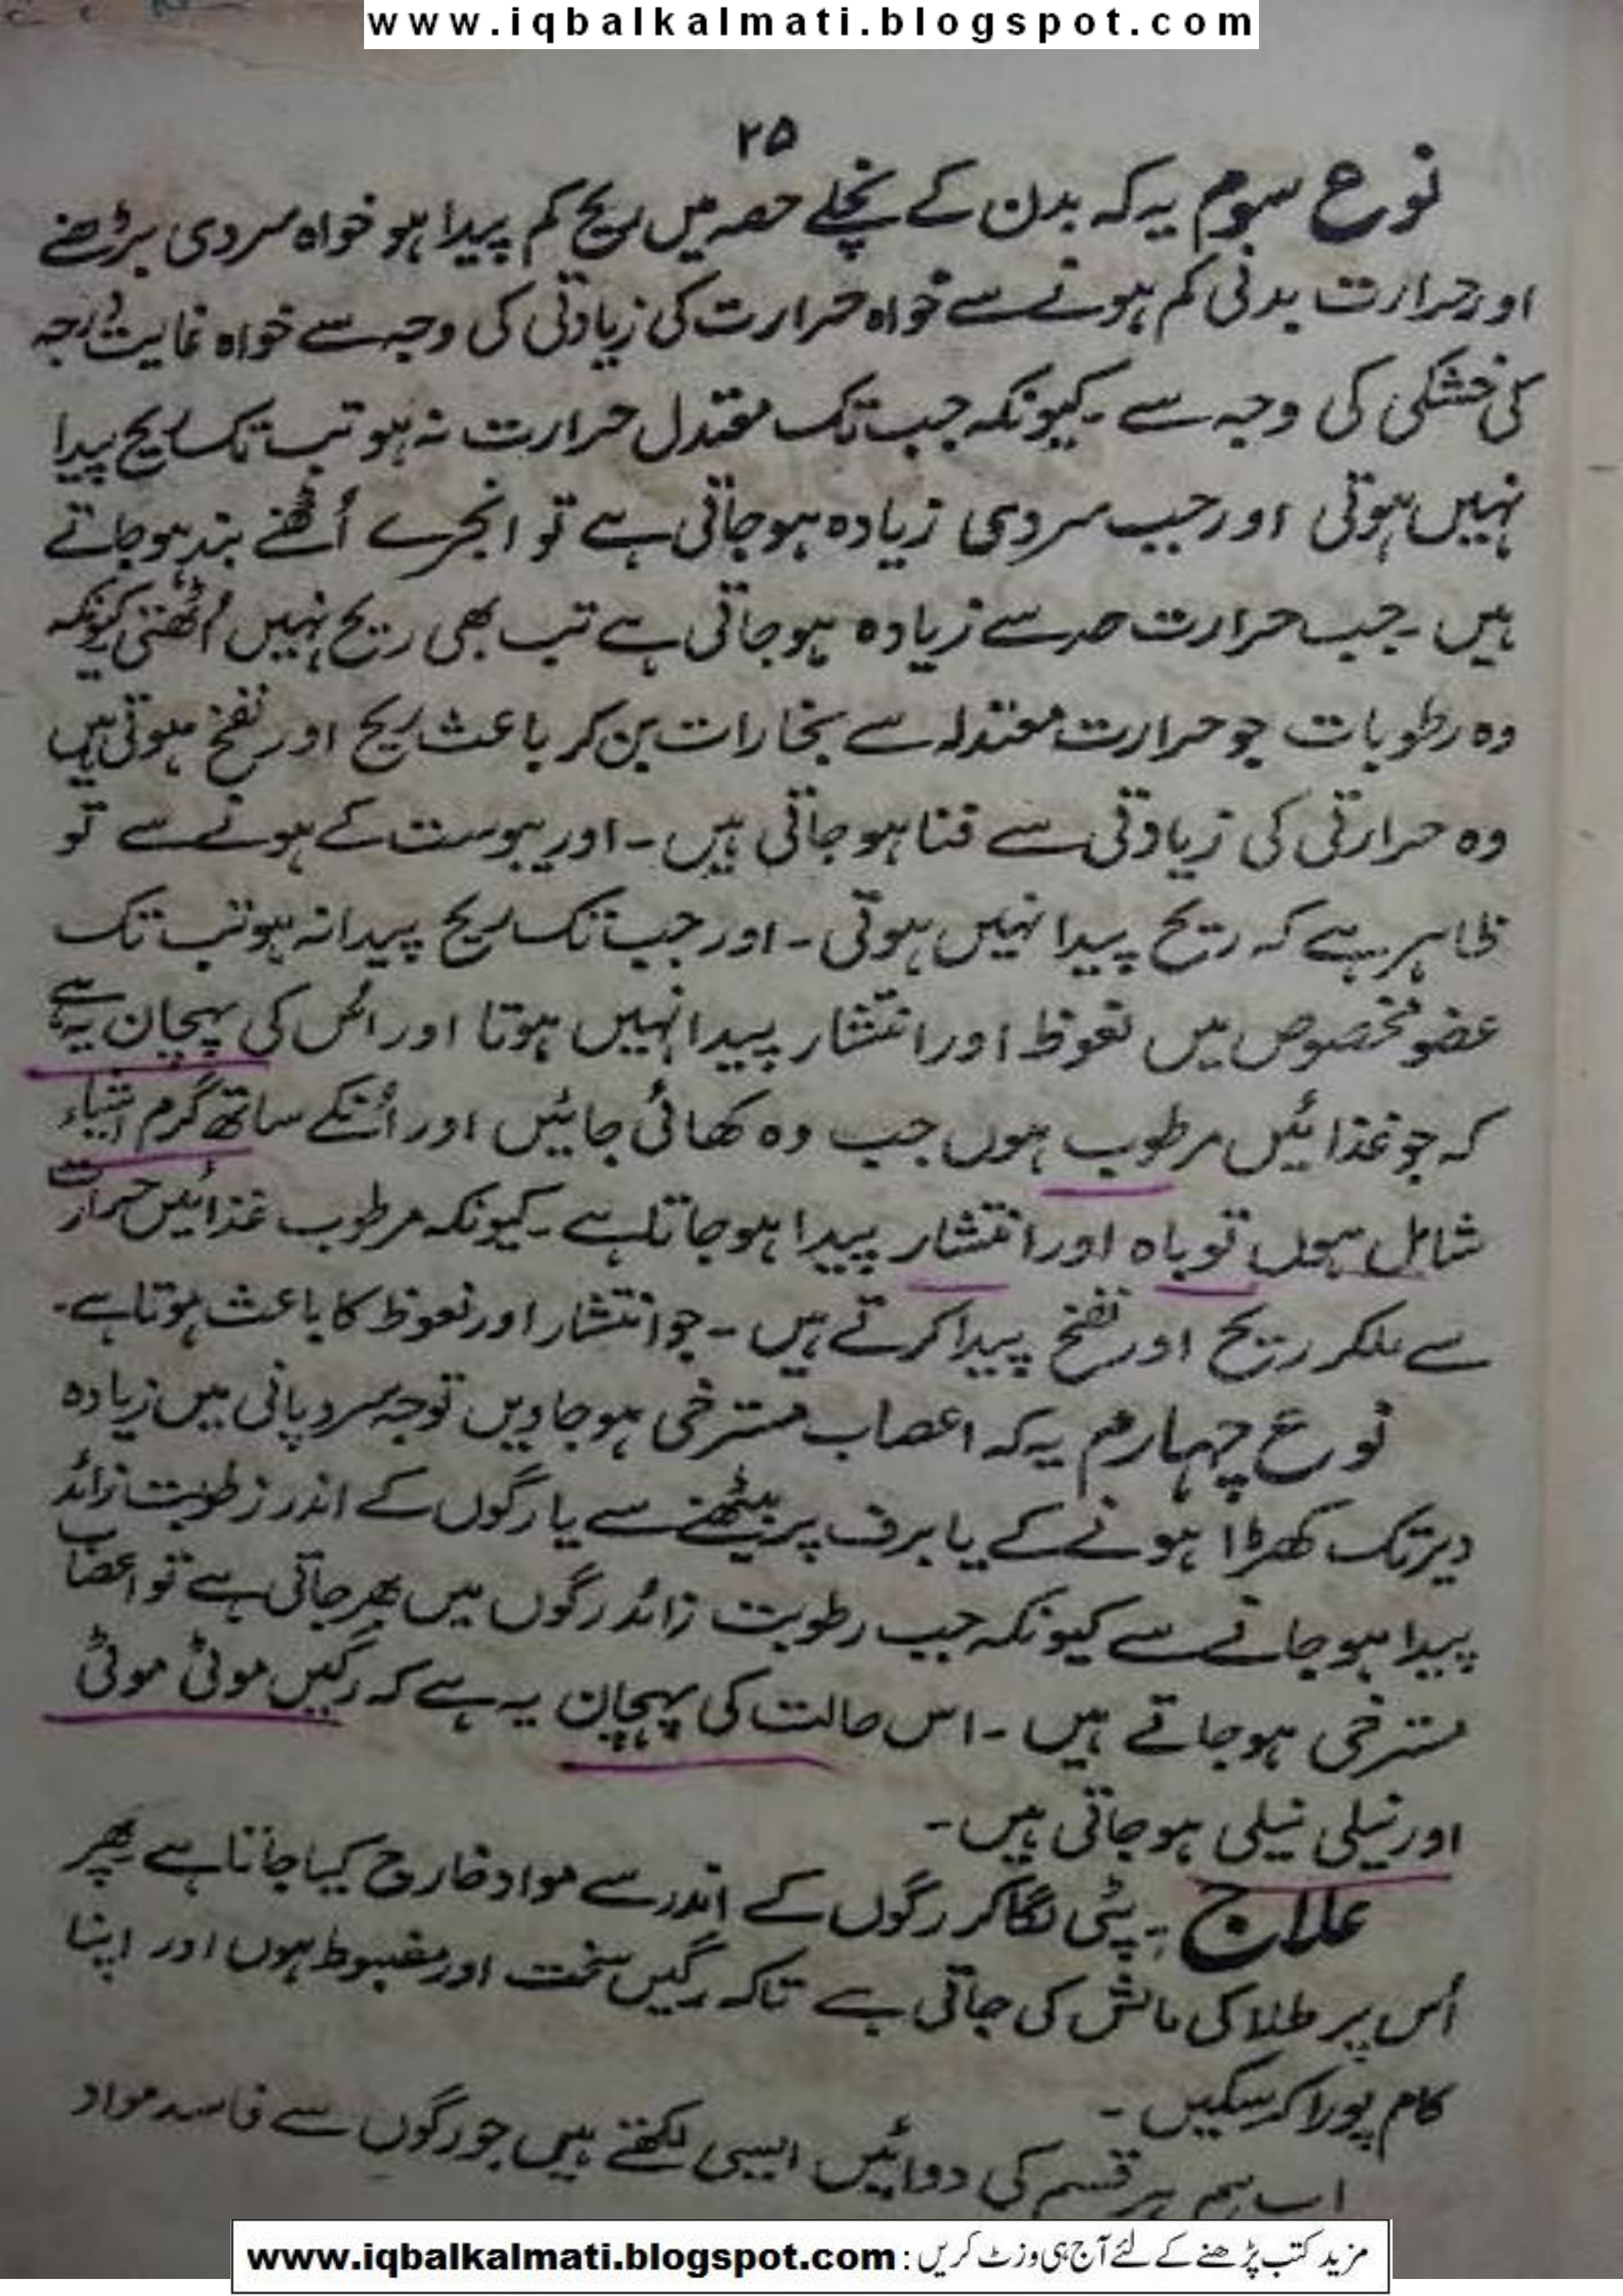 www.iqbalkalmati.blogspot.com
۲۵
نوع سوم یہ کہ بدن کے نچلے حصہ میں ریح کم پیدا ہو خواہ سردی بڑھنے
اور حرارت بدنی کم ہونے سے خواہ حرارت کی زیادتی کی وجہ سے خواہ غایت درجہ
کی خشکی کی وجہ سے ۔ کیونکہ جب تک معتدل حرارت نہ ہو تب تک ریح پیدا
نہیں ہوتی اور جب سردی زیادہ ہو جاتی ہے تو انجرے اُٹھنے بند ہو جاتے
ہیں ۔ جب حرارت حد سے زیادہ ہو جاتی ہے تب بھی ریح نہیں اُٹھتی کیونکہ
وہ رطوبات جو حرارت معتدلہ سے بخارات بن کر باعث ریح اور نفخ ہوتی ہیں
وہ حرارتی کی زیادتی سے فنا ہو جاتی ہیں ۔ اور یبوست کے ہونے سے تو
ظاہر ہے کہ ریح پیدا نہیں ہوتی ۔ اور جب تک ریح پیدا نہ ہو تب تک
عضو مخصوص میں نعوظ اور انتشار پیدا نہیں ہوتا اور اس کی پہچان یہ ہے
کہ جو غذائیں مرطوب ہوں جب وہ کھائی جائیں اور اُنکے ساتھ گرم اشیاء
شامل ہوں تو باہ اور انتشار پیدا ہو جاتا ہے ۔ کیونکہ مرطوب غذائیں حرارت
سے ملکر ریح اور نفخ پیدا کرتے ہیں ۔ جو انتشار اور نعوظ کا باعث ہوتا ہے ۔
نوع چہارم یہ کہ اعصاب مسترخی ہو جاویں توجہ سرد پانی میں زیادہ
دیر تک کھڑا ہونے کے یا برف پر بیٹھنے سے یا رگوں کے اندر رطوبت زائد
پیدا ہو جانے سے کیونکہ جب رطوبت زائد رگوں میں بھر جاتی ہے تو اعصاب
مسترخی ہو جاتے ہیں ۔ اس حالت کی پہچان یہ ہے کہ رگیں موٹی موٹی
اور نیلی نیلی ہو جاتی ہیں ۔
علاج :۔ پٹی لگا کر رگوں کے اندر سے مواد خارج کیا جاتا ہے پھر
اُس پر طلا کی مالش کی جاتی ہے تاکہ رگیں سخت اور مضبوط ہوں اور اپنا
کام پورا کر سکیں ۔
اب ہم ہر قسم کی دوائیں ایسی لکھتے ہیں جو رگوں سے فاسد مواد
مزید کتب پڑھنے کے لئے آج ہی وزٹ کریں : www.iqbalkalmati.blogspot.com